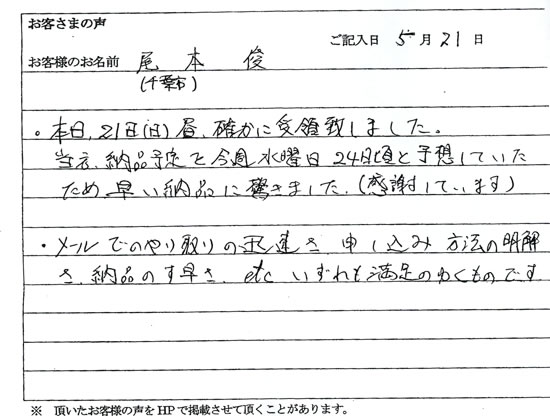 お客さまの声
ご記入日 5月21日
お客様のお名前 尾本 俊
(千葉市)
・本日、21日(日)昼、確かに受領致しました。
当方、納品予定を今週水曜日24日頃と予想していた
ため早い納品に驚きました。(感謝しています)
・メールでのやり取りの迅速さ 申し込み方法の明解
さ、納品のす早さ、etc いずれも満足のゆくものです
※ 頂いたお客様の声をHPで掲載させて頂くことがあります。